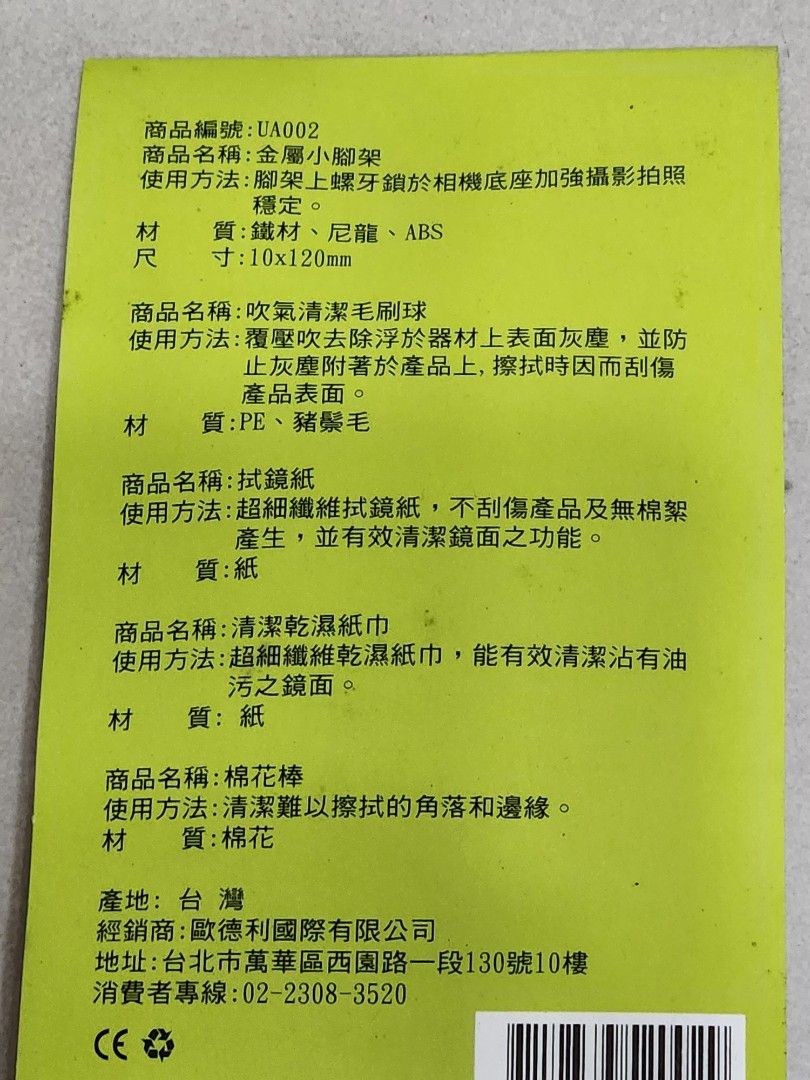 商品編號:UA002
商品名稱:金屬小腳架
使用方法:腳架上螺牙鎖於相機底座加強攝影拍照
穩定。
材 質:鐵材、尼龍、ABS
尺 寸:10x120mm
商品名稱:吹氣清潔毛刷球
使用方法:覆壓吹去除浮於器材上表面灰塵，並防
止灰塵附著於產品上,擦拭時因而刮傷
產品表面。
材 質:PE、豬鬃毛
商品名稱:拭鏡紙
使用方法:超細纖維拭鏡紙，不刮傷產品及無棉絮
產生，並有效清潔鏡面之功能。
材 質:紙
商品名稱:清潔乾濕紙巾
使用方法:超細纖維乾濕紙巾，能有效清潔沾有油
污之鏡面。
材 質: 紙
商品名稱:棉花棒
使用方法:清潔難以擦拭的角落和邊緣。
材 質:棉花
產地: 台 灣
經銷商:歐德利國際有限公司
地址:台北市萬華區西園路一段130號10樓
消費者專線:02-2308-3520
CE